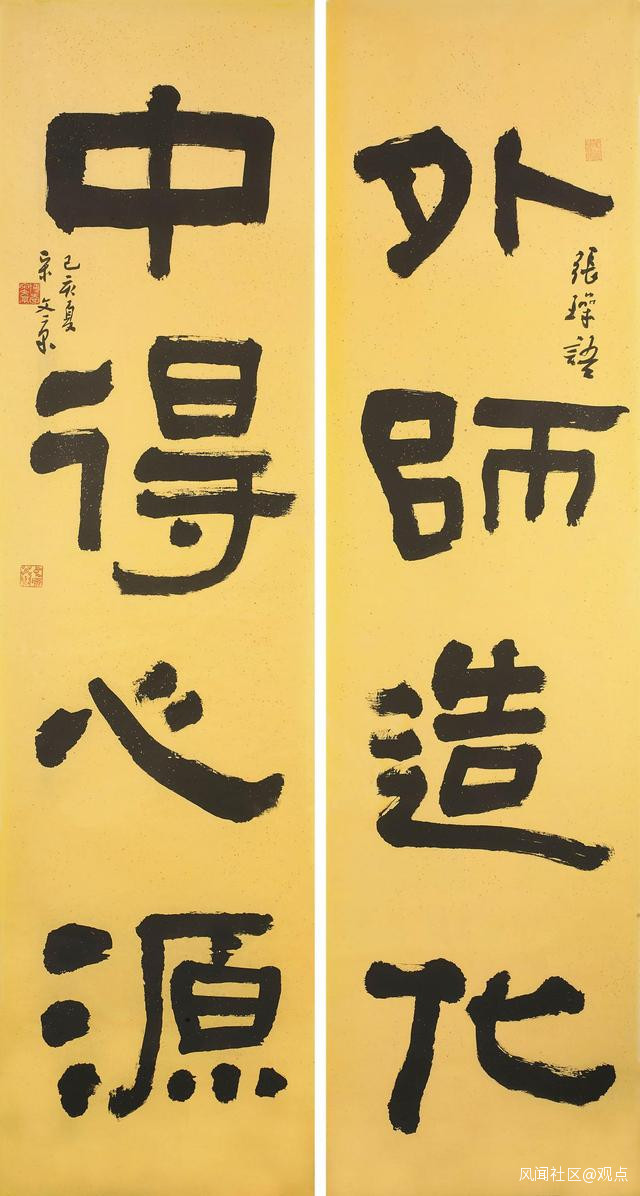 外師造化
張璪語
中得心源
己亥夏
宋文京
风闻社区@观点